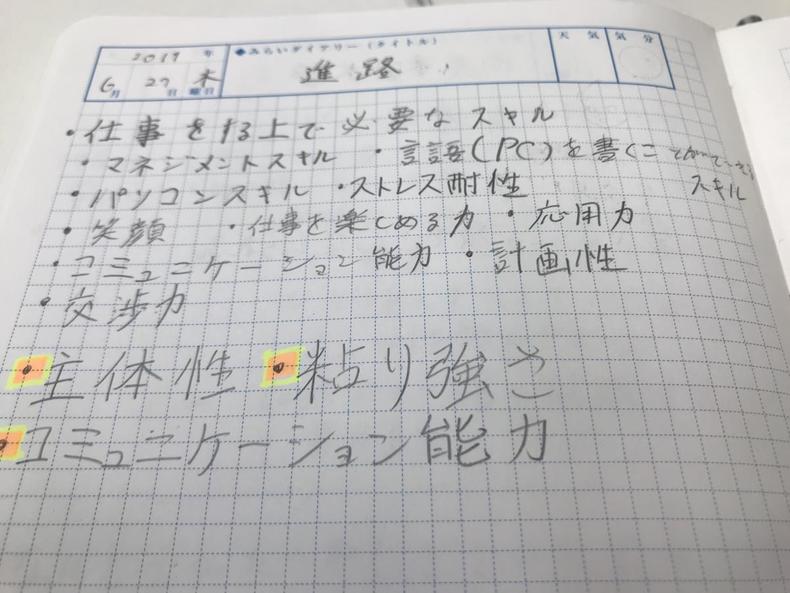 2019 年 ◆みらいダイアリー（タイトル） 天気 気分
6月 27日 木曜日 進路
・仕事をする上で必要なスキル
・マネジメントスキル ・言語(PC)を書くに
スキル
・パソコンスキル ・ストレス耐性
・笑顔 ・仕事を楽しめる力 ・応用力
・コミュニケーション能力 ・計画性
・交渉力
・主体性 ・粘り強さ
・コミュニケーション能力